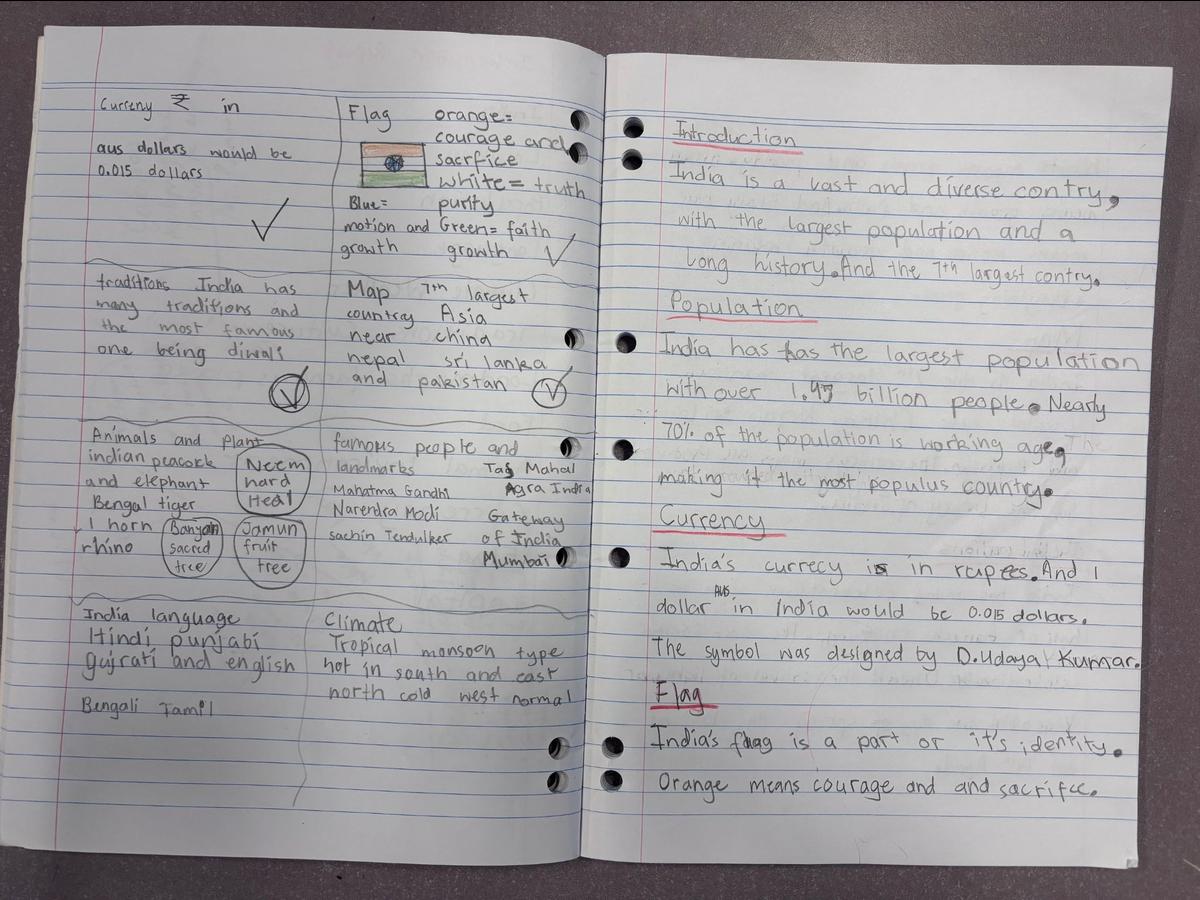 Curreny ₹ in
aus dollars would be
0.015 dollars
Flag orange=
courage and
sacrfice
white= truth
Blue= purity
motion and Green= faith
growth growth
traditions India has
many traditions and
the most famous
one being diwali
Map 7th largest
country Asia
near china
nepal sri lanka
and pakistan
Animals and Plant
indian peacock
and elephant
Bengal tiger
1 horn
rhino
Neem
hard
Heal
Banyan
sacred
tree
Jamun
fruit
tree
famous people and
landmarks
Mahatma Gandhi
Narendra Modi
sachin Tendulker
Taj Mahal
Agra India
Gateway
of India
Mumbai
India language
Hindi punjabi
gujrati and english
Bengali Tamil
Climate
Tropical monsoon type
hot in south and east
north cold west normal
Introduction
India is a vast and diverse contry,
with the largest population and a
long history. And the 7th largest contry.
Population
India has has the largest population
with over 1.45 billion people. Nearly
70% of the population is working age,
making it the most populus country.
Currency
India's currecy is in rupees. And 1
dollar AUS in India would be 0.015 dollars.
The symbol was designed by D.Udaya Kumar.
Flag
India's flag is a part or it's identity.
Orange means courage and and sacrifce.